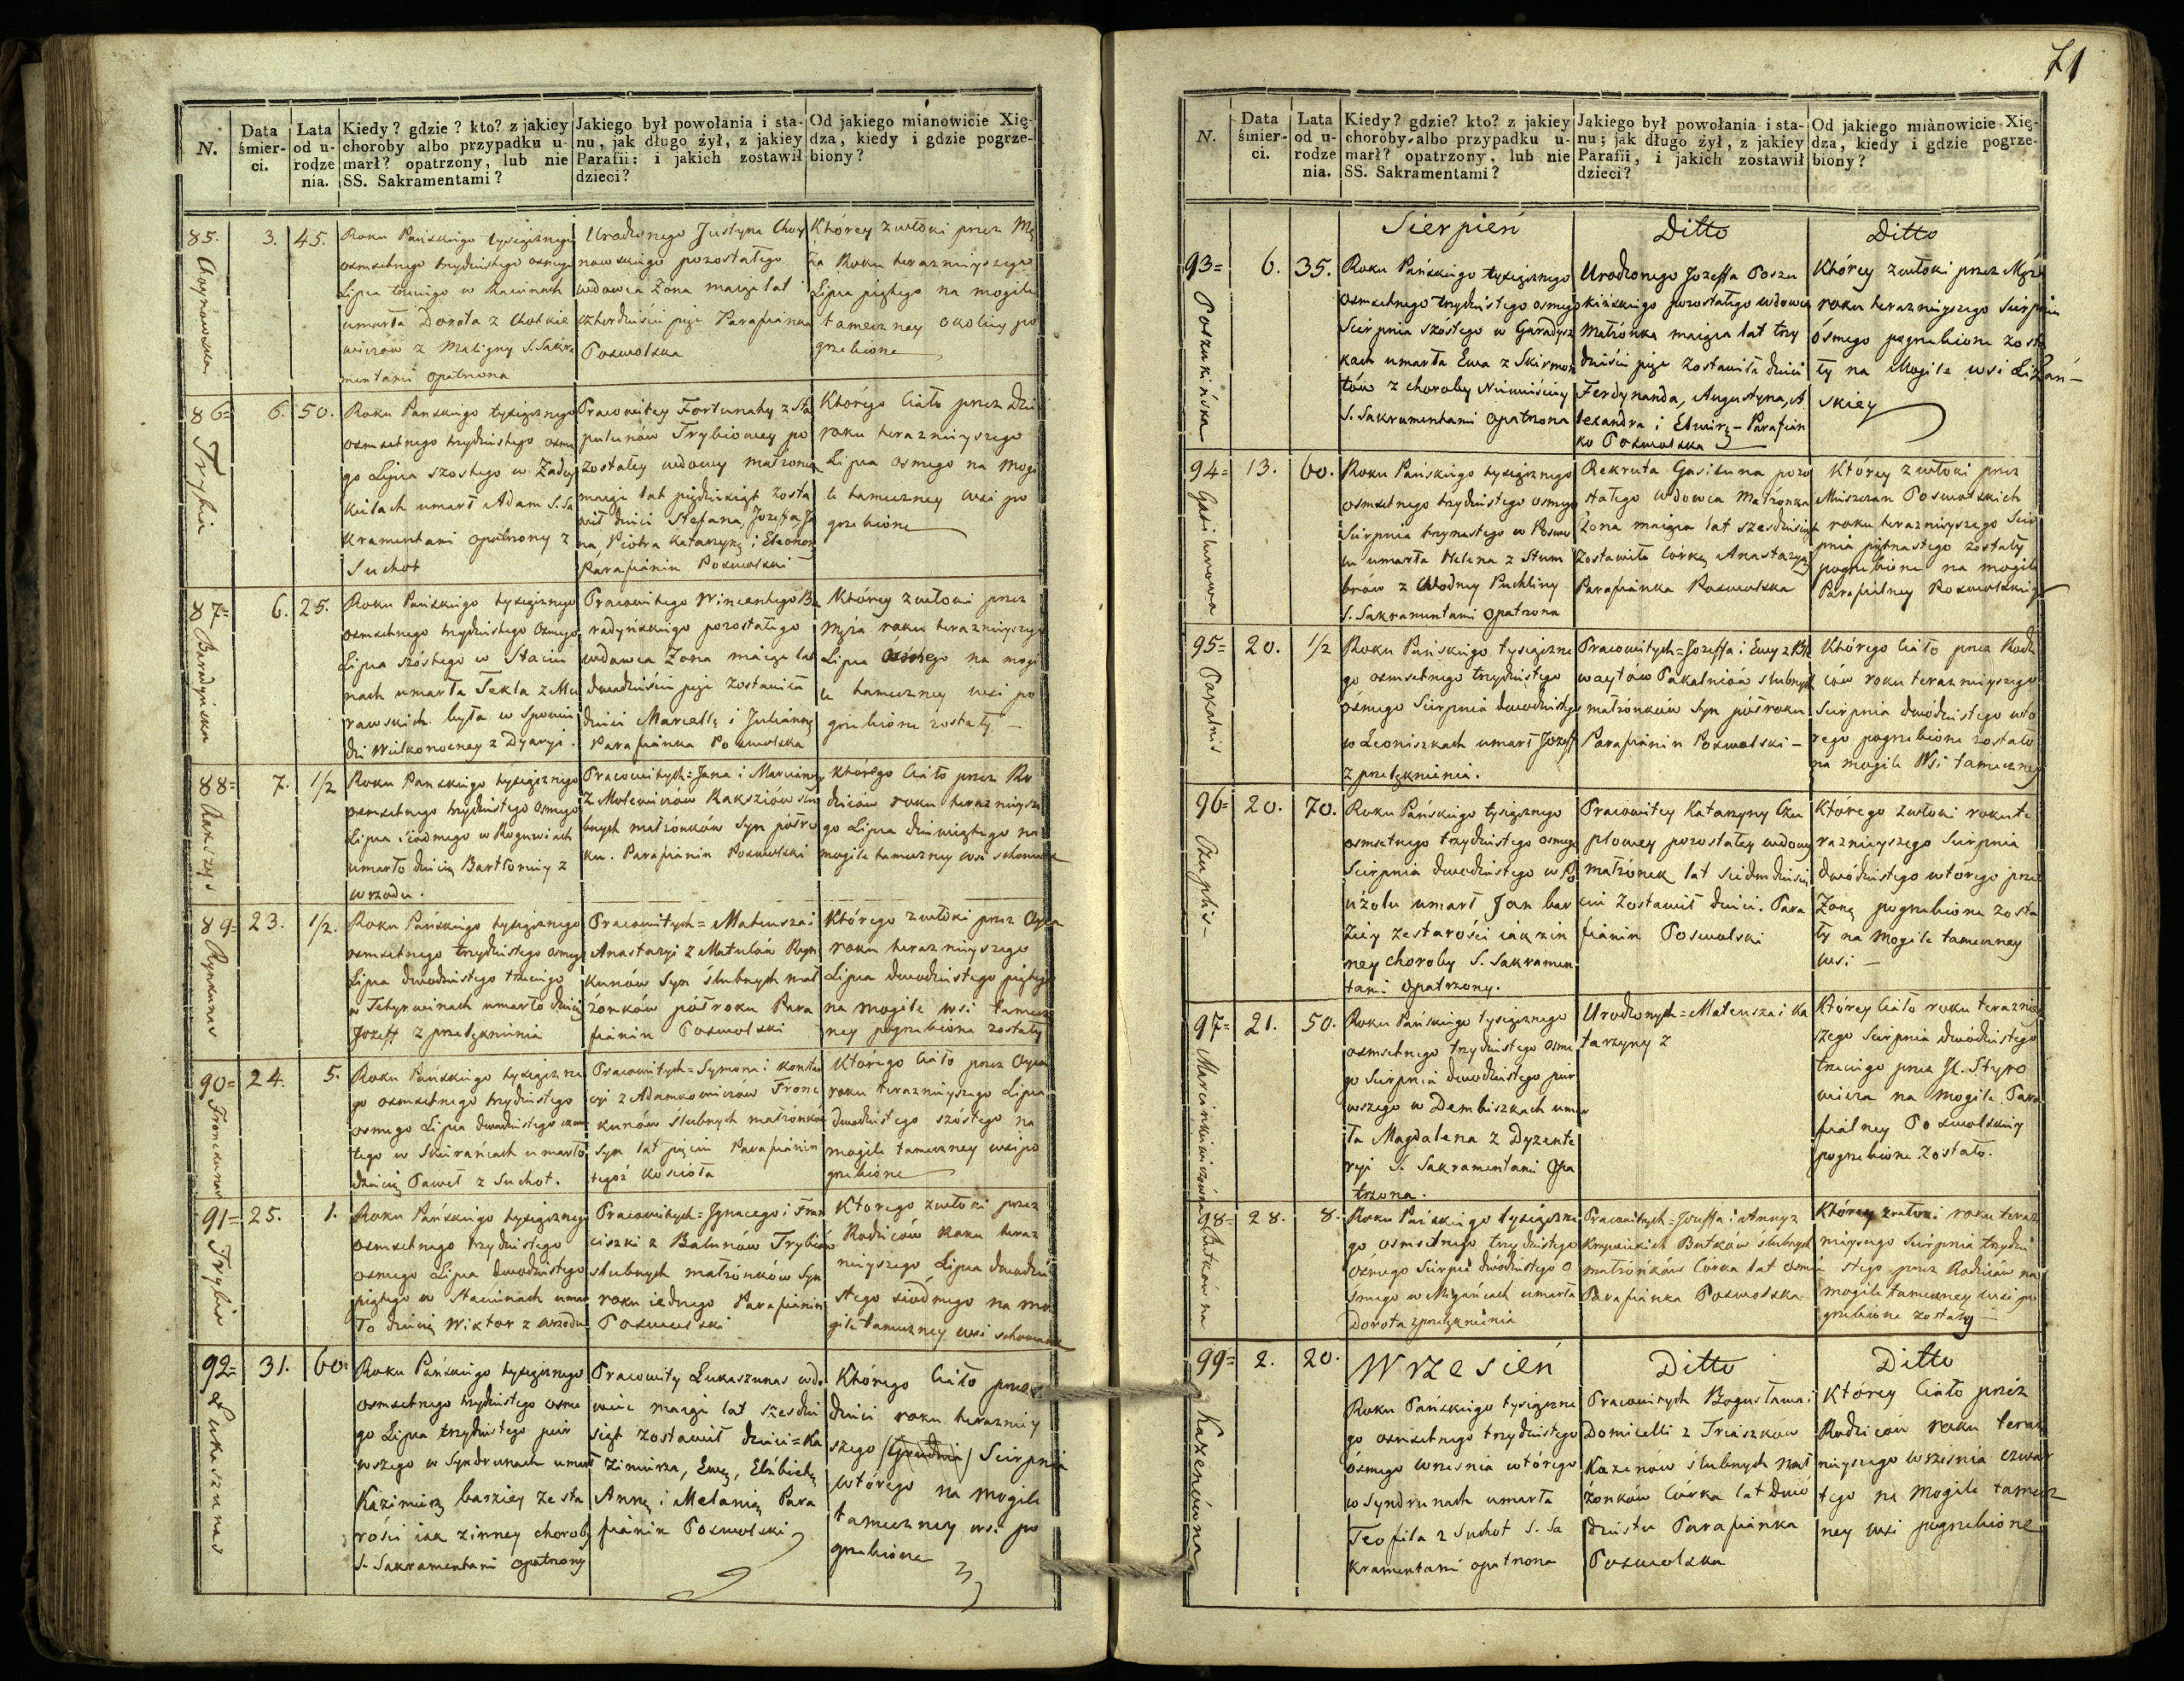 N.
Data śmierci.
Lata od urodzenia.
Kiedy? gdzie? kto? z jakiey
choroby albo przypadku u-
marł? opatrzony, lub nie
SS. Sakramentami?
Jakiego był powołania i sta-
nu, jak długo żył, z jakiey
Parafii: i jakich zostawił
dzieci?
Od jakiego mianowicie Xię-
dza, kiedy i gdzie pogrze-
biony?
85. 3. 45.
Roku Pańskiego tysiącznego
ośmsetnego trzydziestego osmego
Lipca trzeciego w
umarła Dorota z
wiczów z Maligny S. Sakra
mentami opatrzona
Urodzonego Justyna Choy
nowskiego pozostałego
wdowca Żona maiąca lat
czterdzieści pięć Parafianka
Poswolska
Którey zwłoki przez Mę
ża Roku terazniyszego
Lipca piątego na mogile
tameczney okolicy po
grzebione
86= Trybis 6. 50.
Roku Pańskiego tysiącznego
osmsetnego trzydziestego osme
go Lipca szostego w Zadey
kiilach umarł Adam S. Sa
kramentami opatrzony z
Suchot
Pracowitey Fortunaty z Sta
pulunów Trybiowey po
zostałey wdowy małżonek
maiąc lat pięćdziesiąt zosta
wił dzieci Stefana, Jozeffa Ja
na, Piotra Katarzynę i Eleonorę
Parafianin Poswolski
Którego Ciało przez dzieci
roku terazniyszego
Lipca osmego na mogi
le tameczney wsi po
grzebione
87= Baradyńska 6. 25.
Roku Pańskiego tysiącznego
osmsetnego trzydziestego Osmego
Lipca szóstego w Staciu
nach umarła Tekla z Mu
rawskich była w Spowie
dzi Wielkanocney z Dyaryi.
Pracowitego Wincentego Ba
radyńskiego pozostałego
wdowca Żona maiąca lat
dwadzieścia pięć zostawiła
dzieci Marcellę i Juliannę
Parafianka Poswolska
Którey zwłoki przez
Męża roku terazniyszego
Lipca Osmego na mogi
le tameczney wsi po
grzebione zostały —
88= 7. 1/2
Roku Pańskiego tysiącznego
osmsetnego trzydziestego Osmego
Lipca siodmego w Roguwiach
umarło dziecię Bartłomiey z
wrzodu.
Pracowitych= Jana i Maryanny
z Molewiczów Rakszów slu
bnych małżonków Syn półro
ku. Parafianin Poswolski
Którego Ciało przez Ro
dziców roku terazniysze
go Lipca dziewiątego na
mogile tameczney wsi schowane
89= Rynkunas 23. 1/2.
Roku Pańskiego tysiącznego
osmsetnego trzydziestego osmego
Lipca dwódziestego trzeciego
w Tetyrwinach umarło dziecię
Jozeff z przelęknienia
Pracowitych= Mateusza i
Anastazyi z Matulów Ryn
kunów Syn ślubnych mał
żonków półroku Para
fianin Poswolski
Którego zwłoki przez Oyca
roku terazniyszego
Lipca dwodziestego piątego
na mogile wsi tamecz
ney pogrzebione zostały
90= Fronckunas 24. 5.
Roku Pańskiego tysiączne
go osmsetnego trzydziestego
osmego Lipca dwodziestego czwar
tego w Skirańcach umarło
dziecię Paweł z Suchot.
Pracowitych= Symona i Konstan
cyi z Adamkowiczów Fronc
kunów ślubnych małżonków
Syn lat pięciu Parafianin
tegoż Kościoła
Którego Ciało przez Oyca
roku terazniyszego Lipca
dwodziestego szóstego na
mogile tameczney wsi po
grzebione
91= Trybis 25. 1.
Roku Pańskiego tysiącznego
osmsetnego trzydziestego
osmego Lipca dwodziestego
piątego w Staciunach umar
ło dziecię Wiktor z wrzodu
Pracowitych= Ignacego i Fran
ciszki z Balunów Trybiów
slubnych małżonków Syn
roku iednego Parafianin
Poswolski
Którego zwłoki przez
Rodziców Roku teraz
nieyszego Lipca dwodzie
stego siódmego na mo
gile tameczney wsi schowane
92= Łukaszunas 31. 60.
Roku Pańskiego tysiącznego
osmsetnego trzydziestego osme
go Lipca trzydziestego pier
wszego w Syndrunach umarł
Kazimierz barziey ze sta
rości iak zinney choroby
S. Sakramentami opatrzony
Pracowity Łukaszunas wdo
wiec maiąc lat szesdzie
siąt zostawił dzieci= Ka
zimierza, Ewę, Elżbietę
Annę i Melanię Para
fianin Poswolski
Którego Ciało przez
dzieci roku terazniey
szego (Grudnia) Sierpnia
wtórego na mogile
tameczney wsi po
grzebione
71
N.
Data śmierci.
Lata od urodzenia.
Kiedy? gdzie? kto? z jakiey
choroby, albo przypadku u-
marł? opatrzony, lub nie
SS. Sakramentami?
Jakiego był powołania i sta-
nu; jak długo żył, z jakiey
Parafii, i jakich zostawił
dzieci?
Od jakiego mianowicie Xię-
dza, kiedy i gdzie pogrze-
biony?
Sierpień Ditto Ditto
93= Poszukińska 6. 35.
Roku Pańskiego tysiącznego
osmsetnego trzydziestego osmego
Sierpnia szóstego w Garadysz
kach umarła Ewa z Skirmon
tów z choroby Niewieściey
S. Sakramentami opatrzona
Urodzonego Jozeffa Poszu
kińskiego pozostałego wdowca
Małżonka maiąca lat trzy
dzieści pięć zostawiła dzieci
Ferdynanda, Augustyna, A
lexandra i Elwirę — Parafian
ka Poswolska
Którey zwłoki przez Męża
roku terazniyszego Sierpnia
ósmego pogrzebione zosta
ły na Mogile wsi Liżań—
skiey
94= 13. 60.
Roku Pańskiego tysiącznego
osmsetnego trzydziestego osmego
Sierpnia trzynastego w Poswo
lu umarła Helena z Stum
brów z Chłodney Puchliny
S. Sakramentami opatrzona
Rekruta Gasiluna pozo
stałego wdowca Małżonka
Żona maiąca lat szesdziesiąt
zostawiła Córkę Anastazyą
Parafianka Poswolska
Którey zwłoki przez
Mieszczan Poswolskich
roku terazniyszego Sier
pnia piętnastego zostały
pogrzebione na mogile
Parafialney Poswolskiey
95= Pakalnis 20. 1/2
Roku Pańskiego tysiączne
go osmsetnego trzydziestego
ósmego Sierpnia dwodziestego
w Leoniszkach umarł Jozeff
z przelęknienia.
Pracowitych= Jozeffa i Ewy z
waytów Pakalniów slubnych
małżonków Syn półroku
Parafianin Poswolski —
Którego Ciało przez Rodzi
ców roku terazniyszego
Sierpnia dwódziestego wtó
rego pogrzebione zostało
na mogile Wsi tameczney
96= Czuplis 20. 70.
Roku Pańskiego tysiącznego
osmsetnego trzydziestego osmego
Sierpnia dwodziestego w Po
iżolu umarł Jan bar
ziey ze starości iak z in
ney choroby S. Sakramen
tami opatrzony.
Pracowitey Katarzyny Czu
plowey pozostałey wdowy
małżonek lat siedmdziesię
ciu zostawił dzieci. Para
fianin Poswolski
Którego zwłoki roku te
razniyszego Sierpnia
dwódziestego wtórego przez
Żonę pogrzebione zosta
ły na mogile tameczney
wsi —
97= Marcinkiewiczówna 21. 50.
Roku Pańskiego tysiącznego
osmsetnego trzydziestego osme
go Sierpnia dwodziestego pier
wszego w Dembiszkach umar
ła Magdalena z Dyzente
ryi S. Sakramentami Opa
trzona.
Urodzonych= Mateusza i Ka
tarzyny z
Którey Ciało roku terazniey
szego Sierpnia dwódziestego
trzeciego przez JX. Styro
wicza na mogile Para
fialney Poswolskiey
pogrzebione zostało.
98= 28. 8.
Roku Pańskiego tysiączne
go osmsetnego trzydziestego
osmego Sierpnia dwódziestego O
smego w Migańcach umarła
Dorota z przelęknienia
Pracowitych= Jozeffa i Anny z
Butków slubnych
małżonków Córka lat osmiu
Parafianka Poswolska
Którey zwłoki roku teraz
nieyszego Sierpnia trzydzie
stego przez Rodziców na
mogile tameczney wsi po
grzebione zostały —
99= Kazenówna 2. 20.
Wrzesień Ditto Ditto
Roku Pańskiego tysiączne
go osmsetnego trzydziestego
ósmego Wrzesnia wtórego
w Syndrunach umarła
Teofila z Suchot S. Sa
kramentami opatrzona
Pracowitych Bogusława i
Domicelli z Triaszków
Kazenów ślubnych mał
żonków Córka lat dwó
dziestu Parafianka
Poswolska
Którey Ciało przez
Rodziców roku teraz
nieyszego wrzesnia czwar
tego na Mogile tamecz
ney wsi pogrzebione